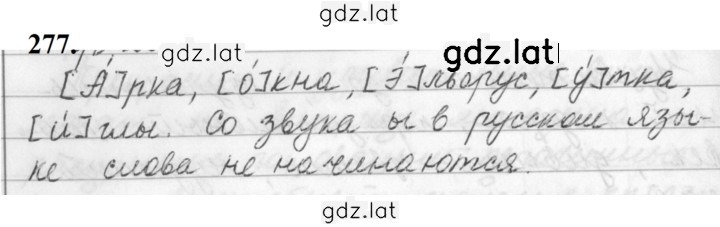 gdz.lat
277. gdz.lat
[А́]рка, [о́]кна, [Э́]льбрус, [у́]тка,
[и́]глы. Со звука ы в русском язы-
ке слова не начинаются.
gdz.lat